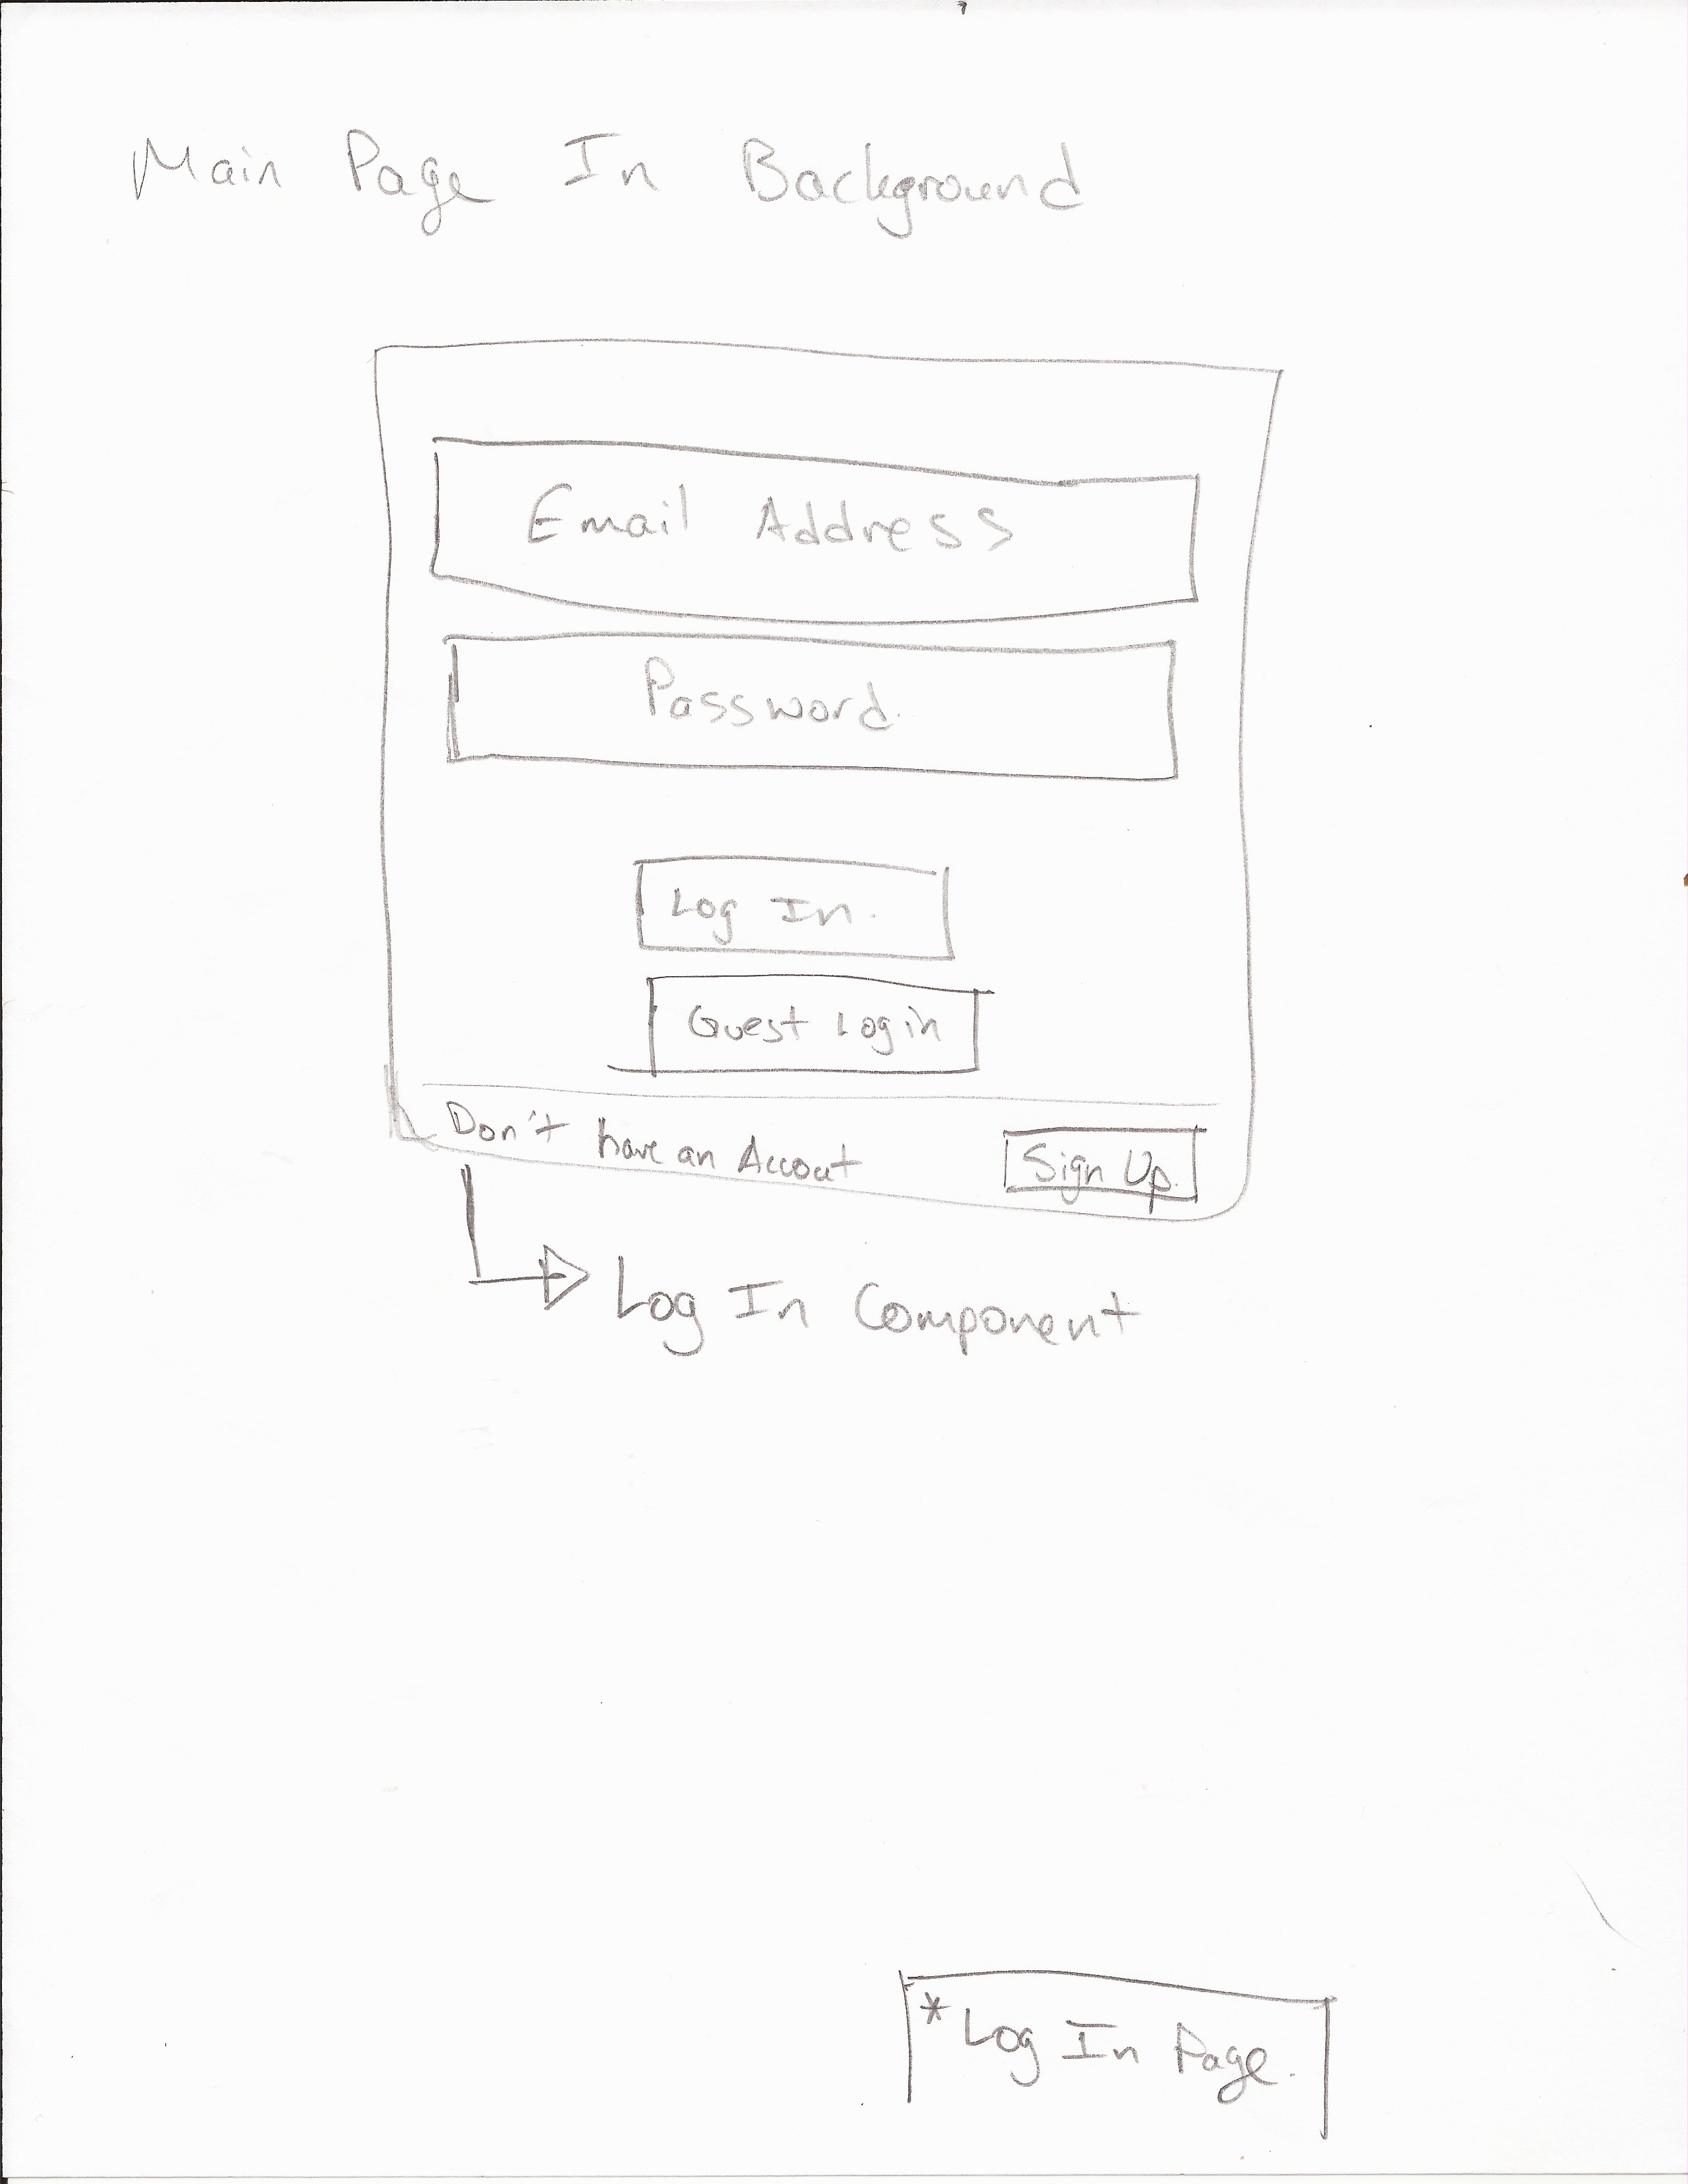 Main Page In Background
Email Address
Password.
Log In.
Guest Login
Don't have an Accout
Sign Up.
Log In Component
* Log In Page.